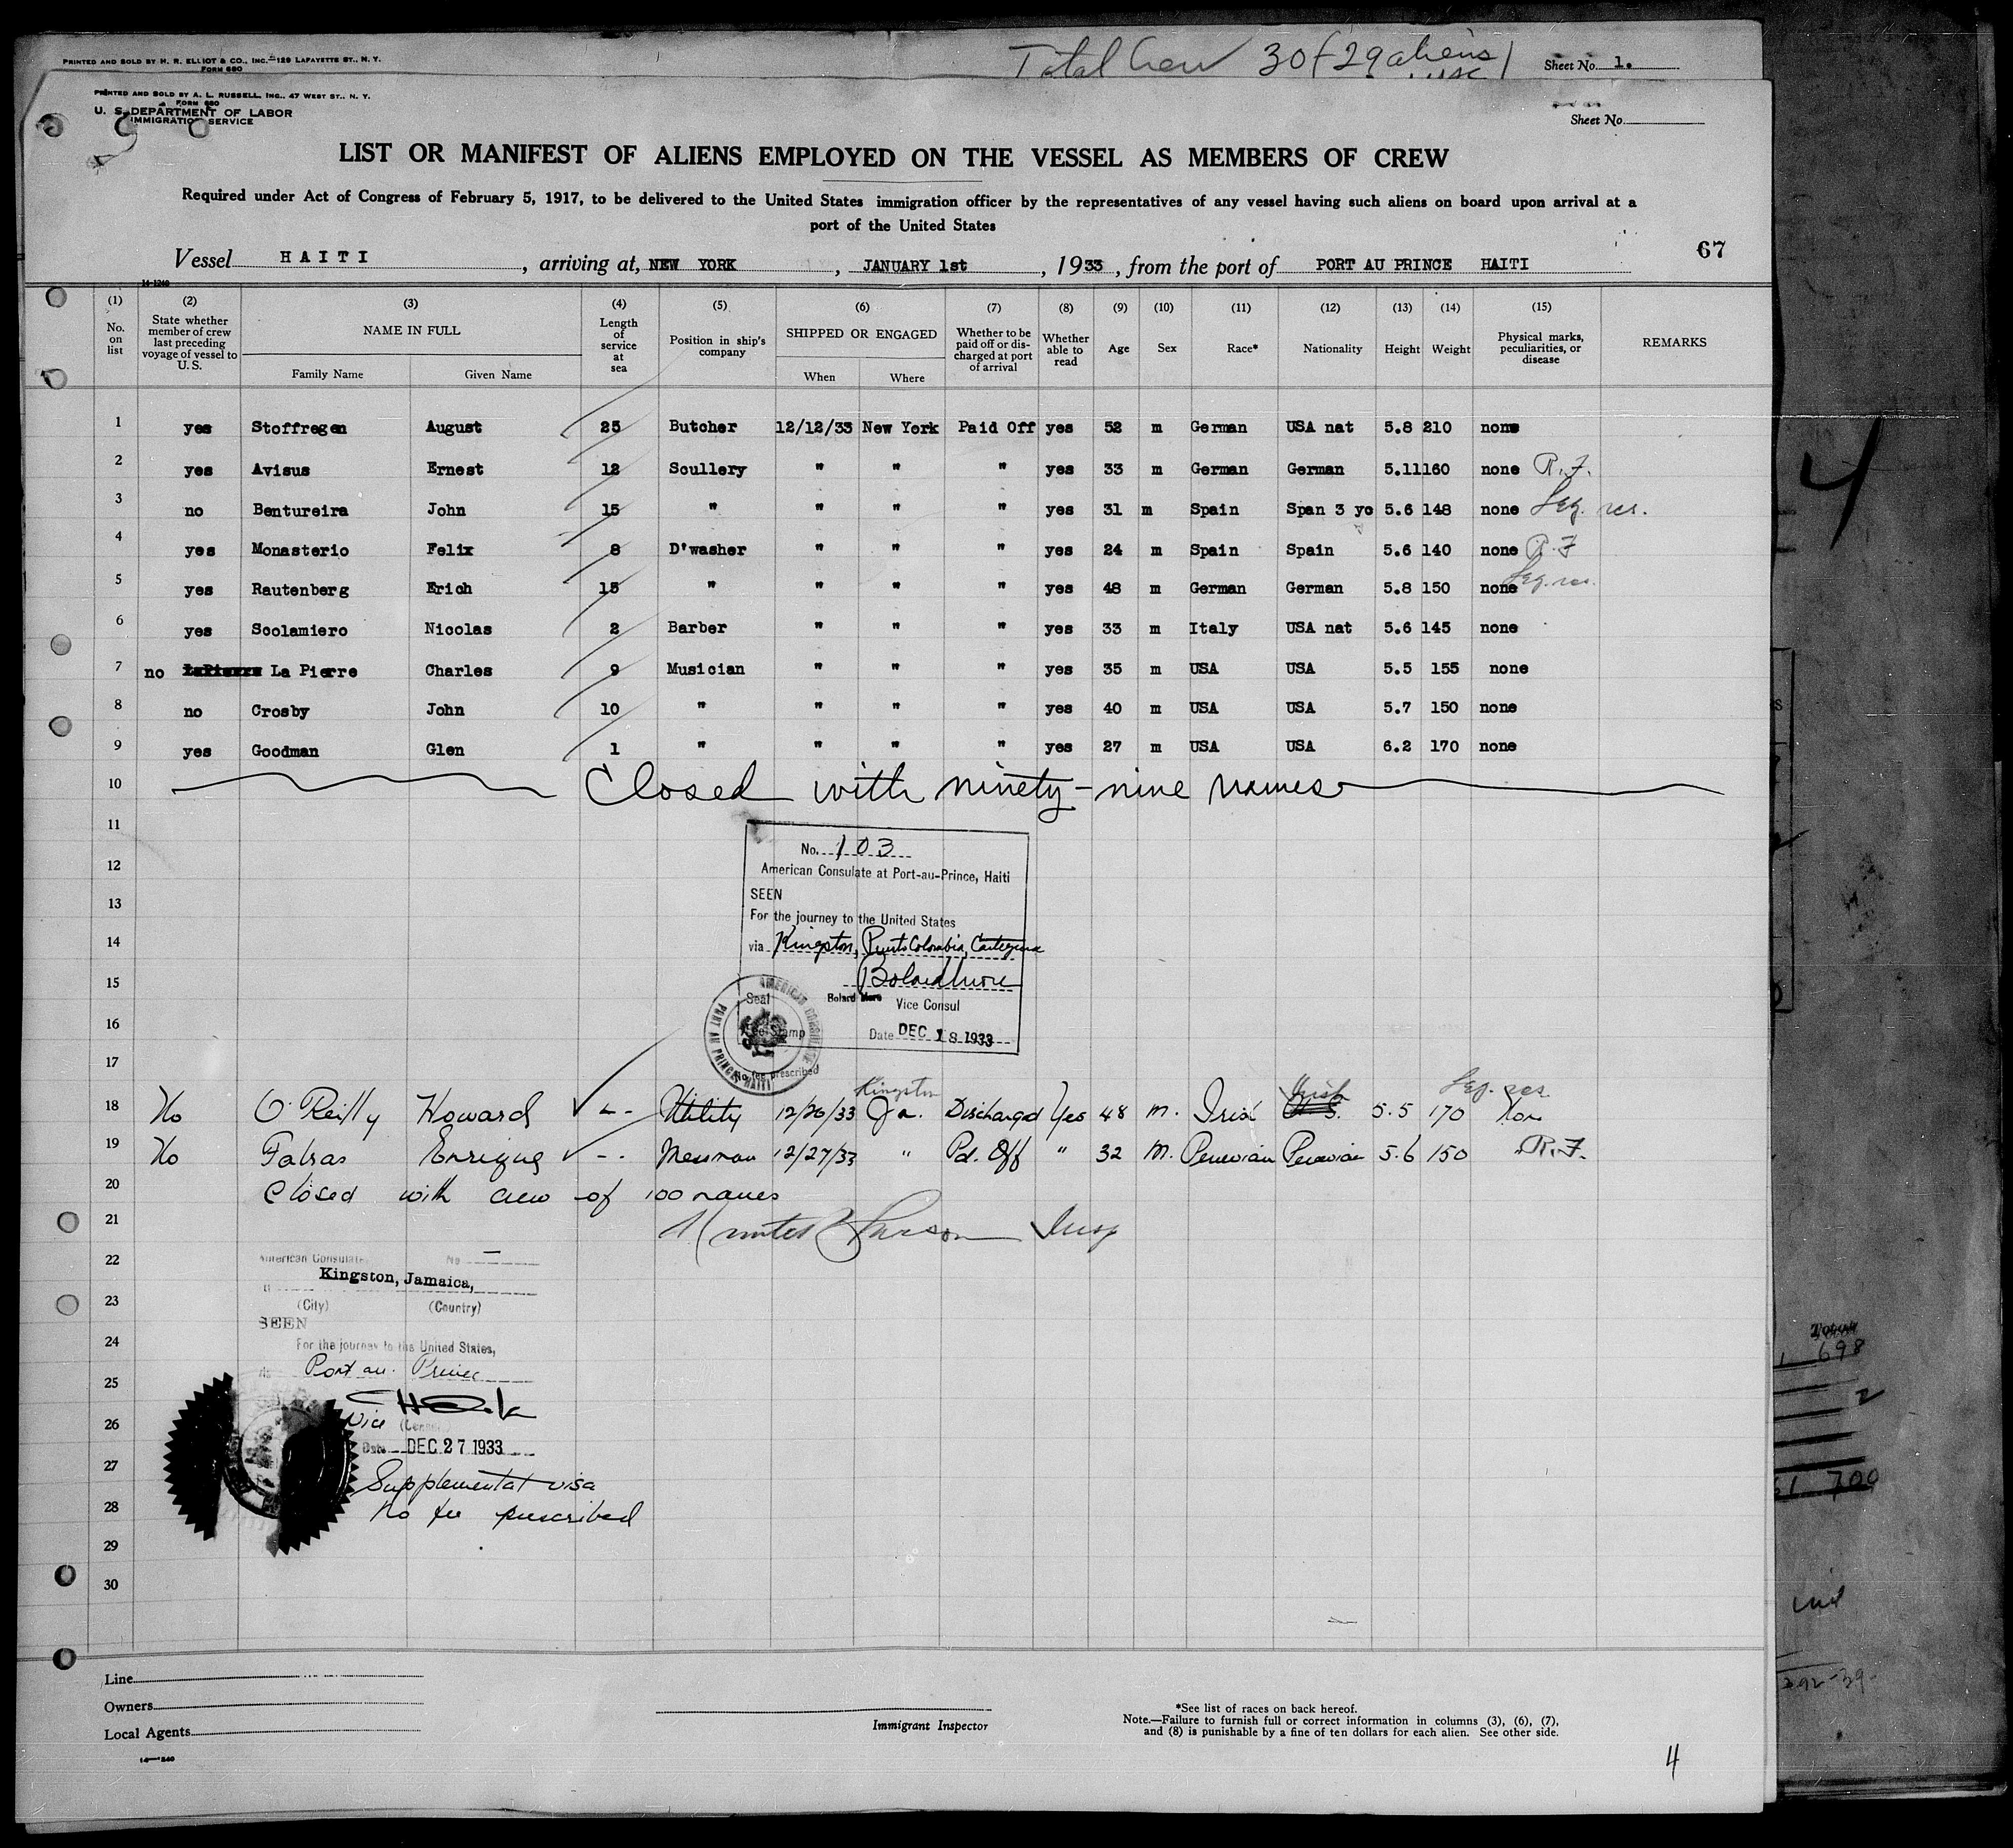 PRINTED AND SOLD BY H. R. ELLIOT & CO., INC. 129 LAFAYETTE ST., N. Y.
FORM 680
Total Crew 30 f 29 aliens
Sheet No. 1.
PRINTED AND SOLD BY A. L. RUSSELL, INC., 47 WEST ST., N. Y.
FORM 680
U. S. DEPARTMENT OF LABOR
IMMIGRATION SERVICE
Sheet No.
LIST OR MANIFEST OF ALIENS EMPLOYED ON THE VESSEL AS MEMBERS OF CREW
Required under Act of Congress of February 5, 1917, to be delivered to the United States immigration officer by the representatives of any vessel having such aliens on board upon arrival at a
port of the United States
67
Vessel HAITI, arriving at, NEW YORK, JANUARY 1st, 1933, from the port of PORT AU PRINCE HAITI
14-1240
(1) No. on list
(2) State whether member of crew last preceding voyage of vessel to U. S.
(3) NAME IN FULL Family Name Given Name
(4) Length of service at sea
(5) Position in ship's company
(6) SHIPPED OR ENGAGED When Where
(7) Whether to be paid off or discharged at port of arrival
(8) Whether able to read
(9) Age
(10) Sex
(11) Race*
(12) Nationality
(13) Height
(14) Weight
(15) Physical marks, peculiarities, or disease
REMARKS
1 yes Stoffregen August 25 Butcher 12/12/33 New York Paid Off yes 52 m German USA nat 5.8 210 none
2 yes Avisus Ernest 12 Scullery " " " yes 33 m German German 5.11 160 none R.F.
3 no Bentureira John 15 " " " " yes 31 m Spain Span 3 yo 5.6 148 none Leg. res.
4 yes Monasterio Felix 8 D'washer " " " yes 24 m Spain Spain 5.6 140 none R.F
5 yes Rautenberg Erich 15 " " " " yes 48 m German German 5.8 150 none Leg. res.
6 yes Scolamiero Nicolas 2 Barber " " " yes 33 m Italy USA nat 5.6 145 none
7 no La Pierre Charles 9 Musician " " " yes 35 m USA USA 5.5 155 none
8 no Crosby John 10 " " " " yes 40 m USA USA 5.7 150 none
9 yes Goodman Glen 1 " " " " yes 27 m USA USA 6.2 170 none
10 Closed with ninety-nine names
11
12
13
14
15
16
17
No. 103
American Consulate at Port-au-Prince, Haiti
SEEN
For the journey to the United States
via Kingston, Puerto Colombia, Cartegena
Bolard More
Seal Bolard More Vice Consul
Fee Stamp Date DEC 18 1933
No fee prescribed
AMERICAN CONSULATE PORT AU PRINCE HAITI
Kingston Irish Leg. res.
18 No O'Reilly Howard Utility 12/26/33 Ja. Discharged Yes 48 m. Irish U.S. 5.5 170 Non
19 No Fabras Enrique Messman 12/27/33 " Pd. Off " 32 M. Peruvian Peruvian 5.6 150 R.F.
20 Closed with crew of 100 names
21 Insp
22
23
24
25
26
27
28
29
30
American Consulate No
Kingston, Jamaica,
(City) (Country)
SEEN
For the journey to the United States,
Port au Prince
Vice
Date DEC 27 1933
Supplemental visa
No fee prescribed
Line
Owners
Local Agents
14-1240
Immigrant Inspector
*See list of races on back hereof.
Note.—Failure to furnish full or correct information in columns (3), (6), (7),
and (8) is punishable by a fine of ten dollars for each alien. See other side.
4
4
698
700